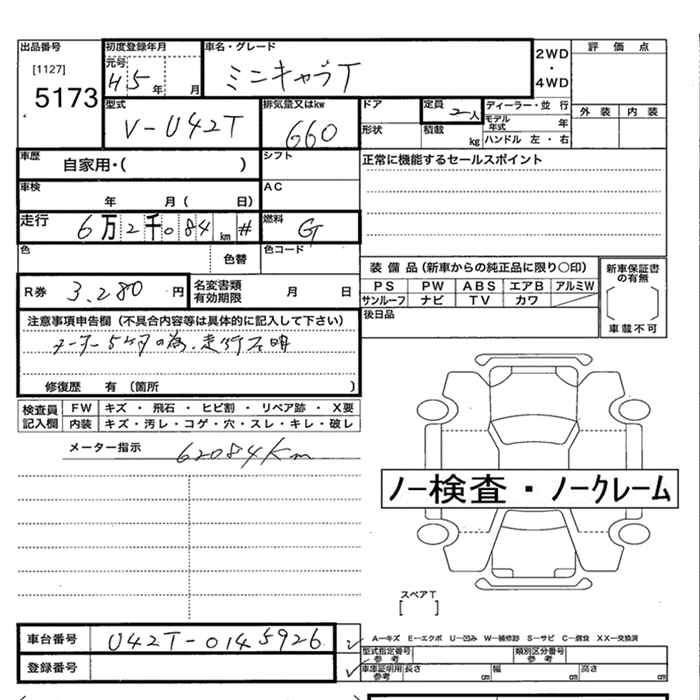 出品番号 [1127] 5173
初度登録年月 元号 H5年 月
車名・グレード ミニキャブT
2WD・4WD
評価点
外装 内装
型式 V-U42T
排気量又はkw 660
ドア
形状
定員 2人
積載 kg
ディーラー・並行
モデル年式 年
ハンドル 左・右
車歴 自家用・( )
シフト
正常に機能するセールスポイント
車検 年 月( 日)
AC
走行 6万2千084km #
燃料 G
色 色替
色コード
装備品(新車からの純正品に限り○印)
PS PW ABS エアB アルミW
サンルーフ ナビ TV カワ
新車保証書の有無
[ ]
車載不可
R券 3,280円
名変書類有効期限 月 日
後日品
注意事項申告欄(不具合内容等は具体的に記入して下さい)
メーター5ケタの為、走行不明
修復歴 有(箇所 )
検査員記入欄 FW キズ・飛石・ヒビ割・リペア跡・X要
内装 キズ・汚レ・コゲ・穴・スレ・キレ・破レ
メーター指示 62084Km
ノー検査・ノークレーム
スペアT
[ ]
車台番号 U42T-0145926
登録番号
A―キズ E―エクボ U―凹み W―補修跡 S―サビ C―腐食 XX―交換済
型式指定番号 参考
類別区分番号 参考
車庫証明用 参考 長さ cm 幅 cm 高さ cm